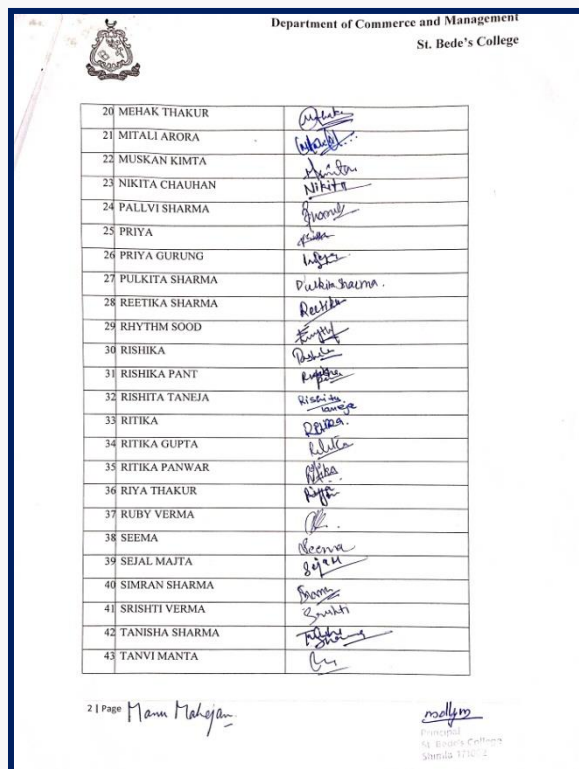 Department of Commerce and Management
St. Bede's College
20 MEHAK THAKUR Mehak
21 MITALI ARORA
22 MUSKAN KIMTA
23 NIKITA CHAUHAN Nikita
24 PALLVI SHARMA
25 PRIYA
26 PRIYA GURUNG
27 PULKITA SHARMA Pulkita Sharma.
28 REETIKA SHARMA Reetika
29 RHYTHM SOOD
30 RISHIKA
31 RISHIKA PANT
32 RISHITA TANEJA Rishita
taneja
33 RITIKA
34 RITIKA GUPTA Ritika
35 RITIKA PANWAR Ritika
36 RIYA THAKUR Riya
37 RUBY VERMA
38 SEEMA Seema
39 SEJAL MAJTA Sejal
40 SIMRAN SHARMA
41 SRISHTI VERMA Srishti
42 TANISHA SHARMA
43 TANVI MANTA
2 | Page Manu Mahajan
Principal
St. Bede's College
Shimla 171002